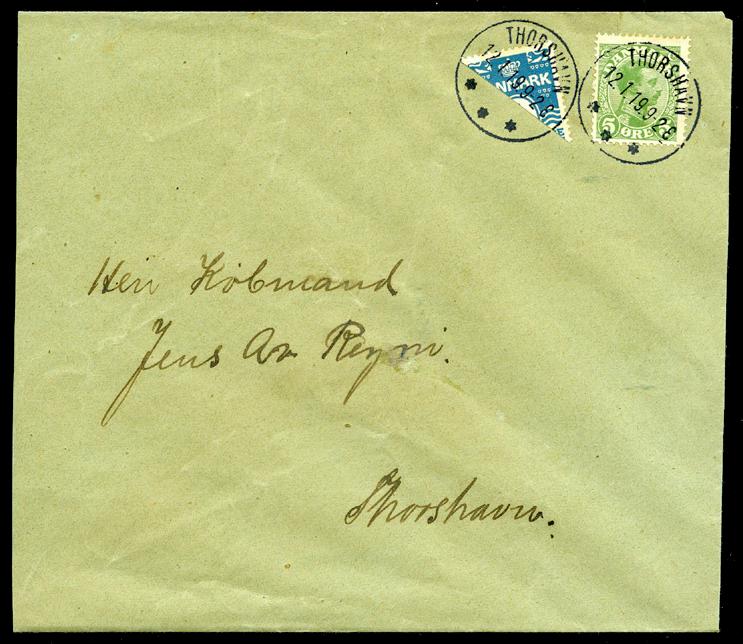 THORSHAVN
12.1.19.9-2E
NMARK
THORSHAVN
12.1.19.9-2E
5 ØRE
Herr Købmand
Jens Av Reyni.
Thorshavn.